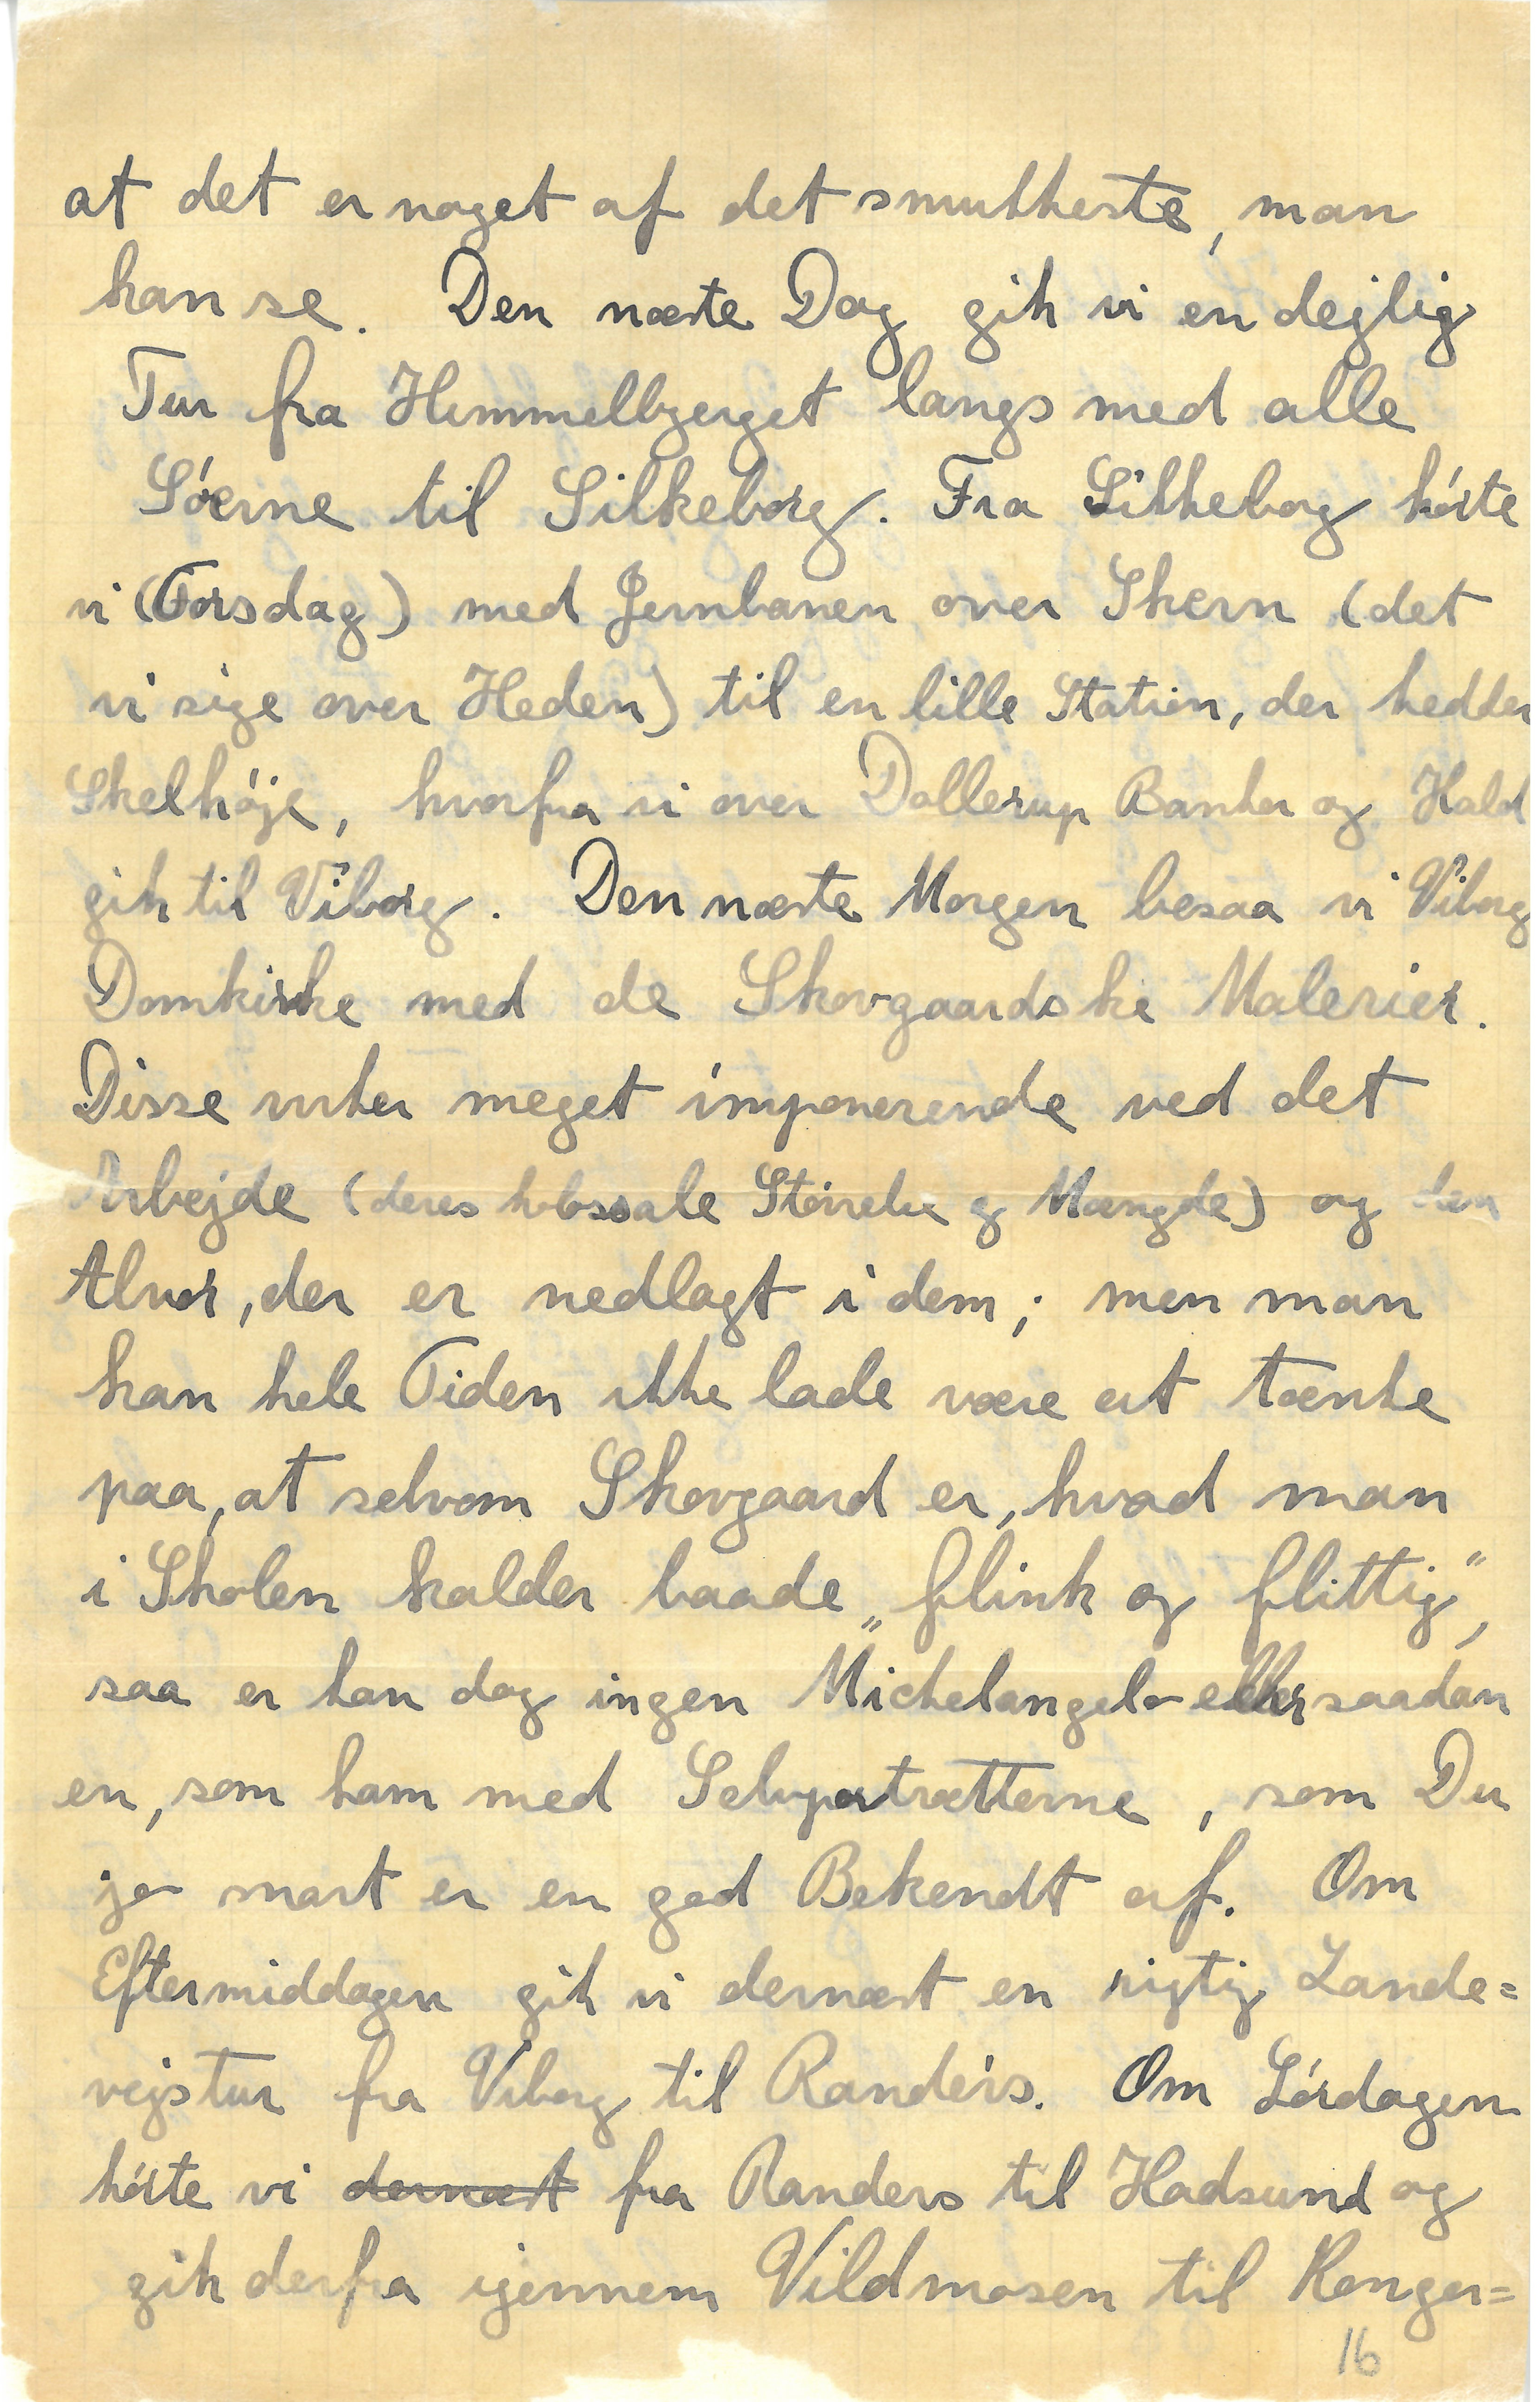 at det er noget af det smukkeste, man
kan se. Den næste Dag gik vi en dejlig
Tur fra Himmelbjerget langs med alle
Søerne til Silkeborg. Fra Silkeborg kørte
vi (Torsdag) med Jernbanen over Skern (det
vi sige over Heden) til en lille Station, der hedder
Skelhøje, hvorfra vi over Dollerup Banker og Hald
gik til Viborg. Den næste Morgen besaa vi Viborg
Domkirke med de Skovgaardske Malerier.
Disse virker meget imponerende ved det
Arbejde (deres kolossale Størrelse og Mængde) og den
Alvor, der er nedlagt i dem; men man
kan hele Tiden ikke lade være at tænke
paa, at selvom Skovgaard er, hvad man
i Skolen kalder baade „flink og flittig",
saa er han dog ingen Michelangelo eller saadan
en, som ham med Selvportrætterne, som Du
jo snart er en god Bekendt af. Om
Eftermiddagen gik vi dernæst en rigtig Lande=
vejstur fra Viborg til Randers. Om Lørdagen
kørte vi dernæst fra Randers til Hadsund og
gik derfra igennem Vildmosen til Konger=
16